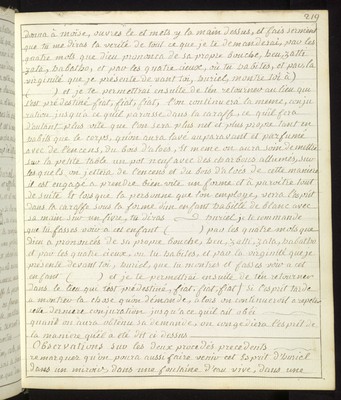 219
donna à moise, ouvres le et mets y la main dessus, et fais serment
que tu me diras la verité de tout ce que je te demanderai, par les
quatre mots que dieu prononça de sa propre bouche, hen, zatti
zata, balatos, et par les quatre cieux, où tu habites, et par la
virginité que je présente devant toi, uriel, montre toi à (
) et je te permettrai ensuite de t'en retourner au lieu qui
t'est prédestiné fiat, fiat, fiat, l'on continuera la meme, conju
ration jusqu'a ce qu'il paroisse dans la caraffe, ce qu'il fera
d'autant plus vite que l'on sera plus net et plus propre tant en
habits que le corps, qu'on aura lavé auparavant et parfumé
avec de l'encens, du bois d'aloes, et meme on aura soin de mettre
sur la petite table un pot neuf avec des charbons allumés, sur
lesquels, on jettera de l'encens et du bois d'aloes de cette maniere
il est engagé a prendre bien vite une forme et à paroitre tout
de suite et lorsque la personne que l'on employe, verra l'esprit
dans la caraffe sous la forme d'un enfant habillé de blanc avec
sa main sur un livre, tu diras uriel je te commande
que tu fasses voir à cet enfant ( ) par les quatre mots que
dieu a prononcés de sa propre bouche, hen, zatti, zata, balatos
et par les quatre cieux, ou tu habites, et par la virginité que je
présente devant toi, uriel, que tu montres et fasses voir a cet
enfant ( ) et je te permettrai ensuite de t'en retourner
dans le lieu qui t'est prédestiné, fiat, fiat, fiat, si l'esprit tarde
a montrer la chose qu'on demande, alors on continuera à répéter
cette derniere conjuration jusqu'a ce qu'il ait obéi
quand on aura obtenu sa demande, on congediera l'esprit de
la maniere qu'il a été dit ci dessus
Observations sur les deux procédés précédents
remarquez qu'on pourra aussi faire venir cet Esprit d'uriel
dans un miroir, dans une fontaine d'eau vive, dans une